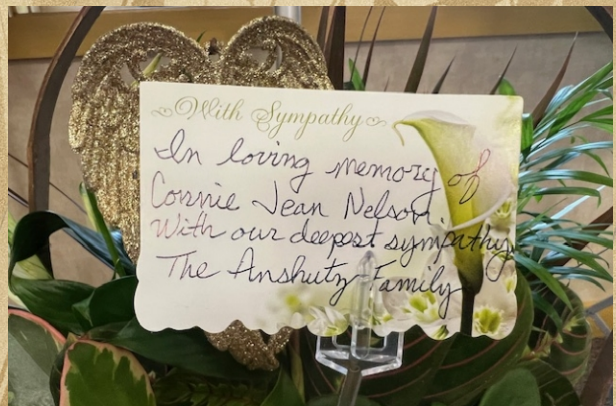 With Sympathy
In loving memory of
Connie Jean Nelson.
With our deepest sympathy
The Anshutz Family